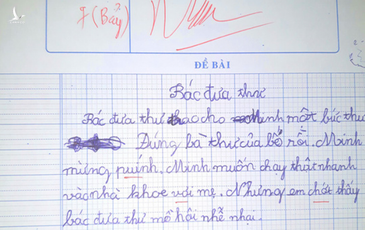 7 (Bảy)
ĐỀ BÀI
Bác đưa thư
Bác đưa thư trao cho Minh một bức thư
Đúng bà thư của bố rồi. Minh
mừng puính. Minh muốn chạy thật nhanh
vào nhà khoe với mẹ. Nhưng em chợt thấy
bác đưa thư mồ hôi nhễ nhại.